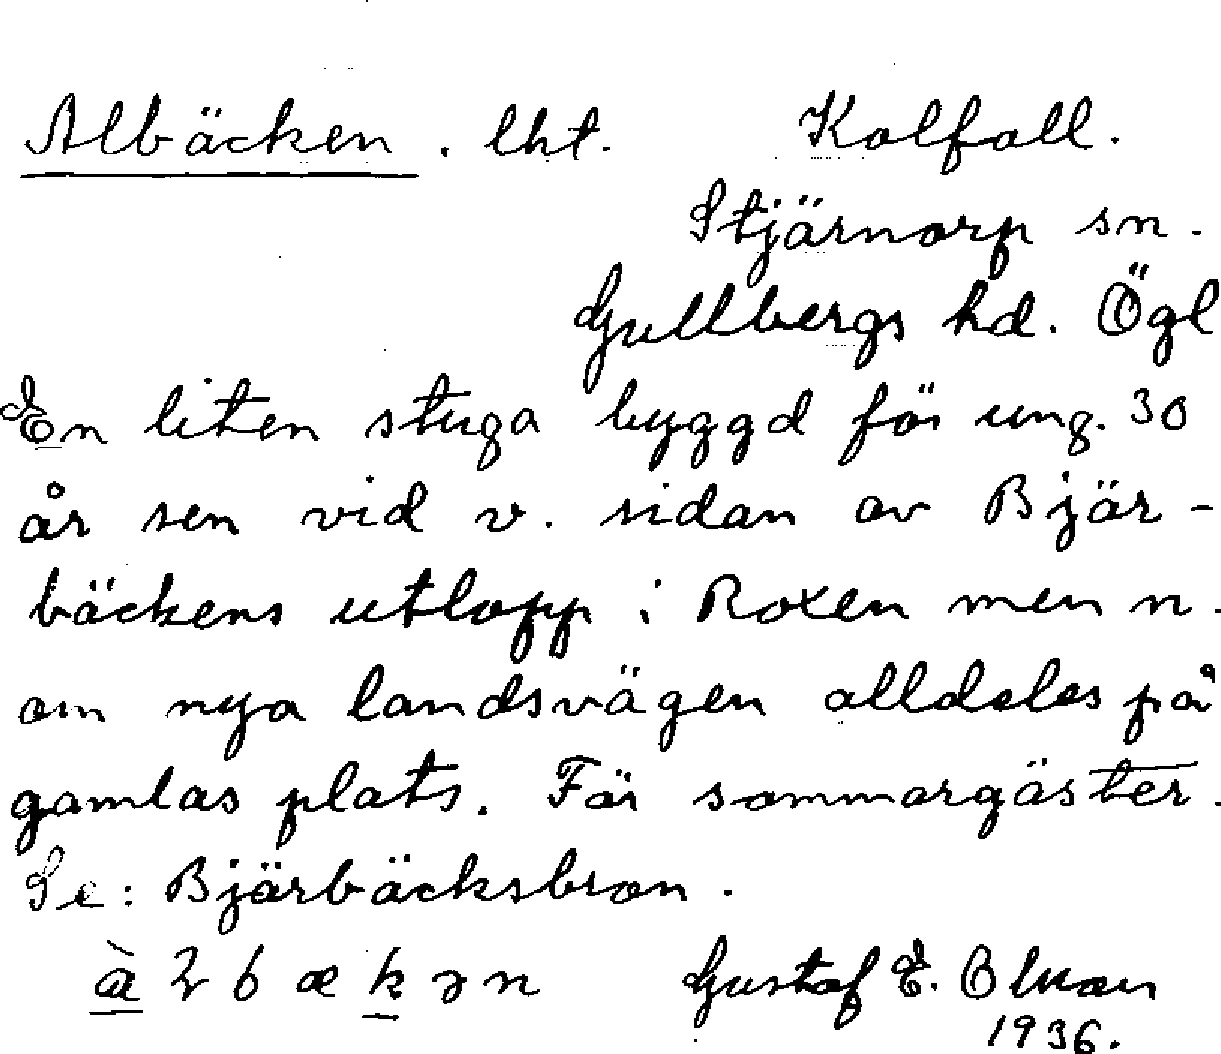 Albäcken. lht. Kolfall.
Stjärnorp sn.
Gullbergs hd. Ögl
En liten stuga byggd för ung. 30
år sen vid v. sidan av Bjär-
bäckens utlopp i Roxen men n.
om nya landsvägen alldeles på
gamlas plats. För sommargäster.
Se: Bjärbäcksbron.
Gustaf E. Olsson
1936.